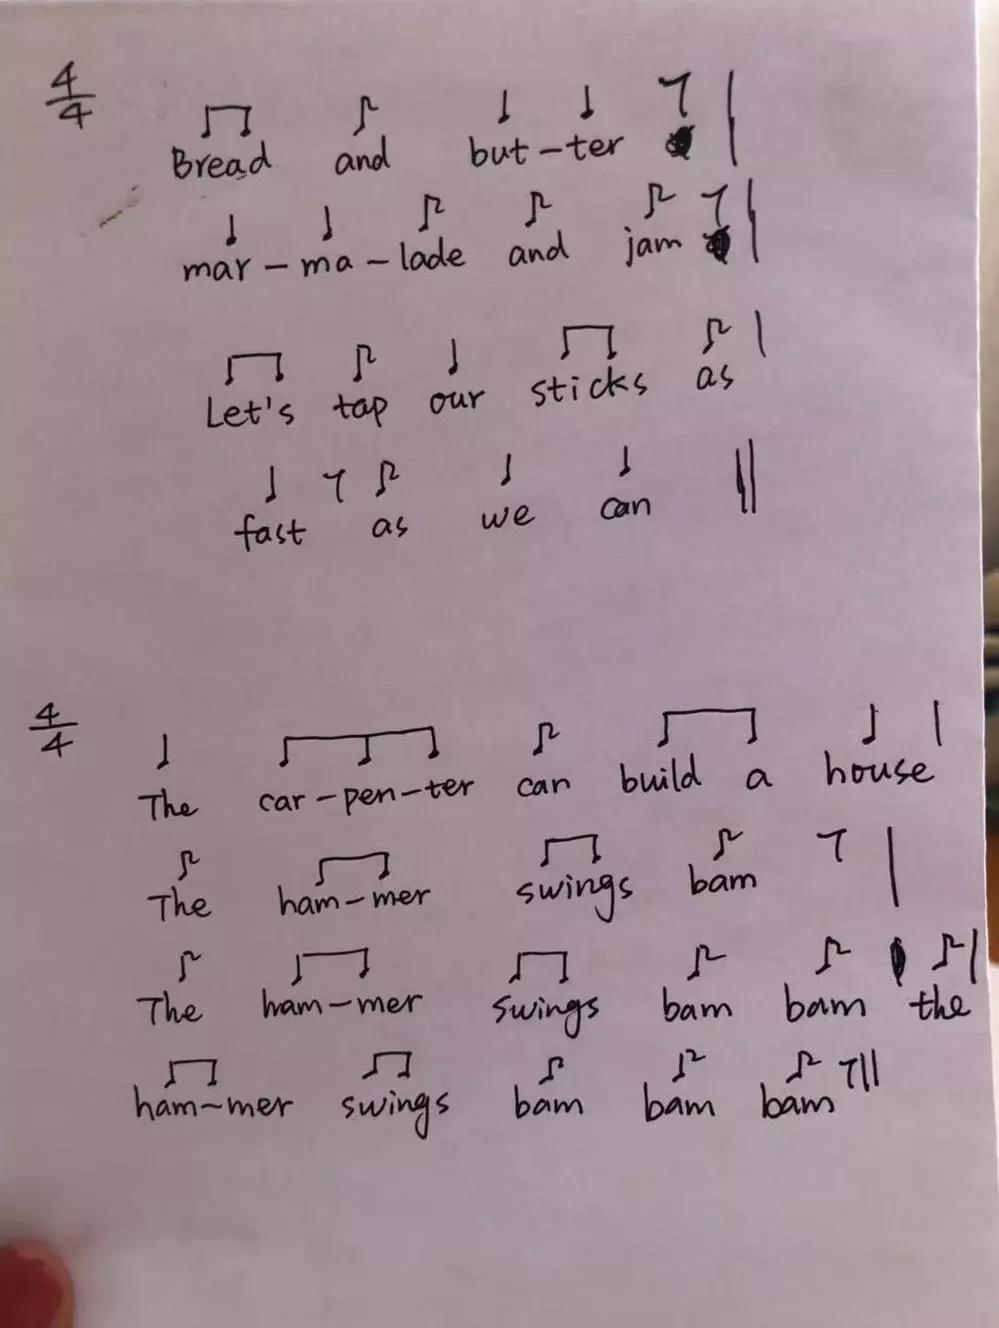 4/4
Bread and but-ter
mar-ma-lade and jam
Let's tap our sticks as
fast as we can
4/4
The car-pen-ter can build a house
The ham-mer swings bam
The ham-mer swings bam bam the
ham-mer swings bam bam bam